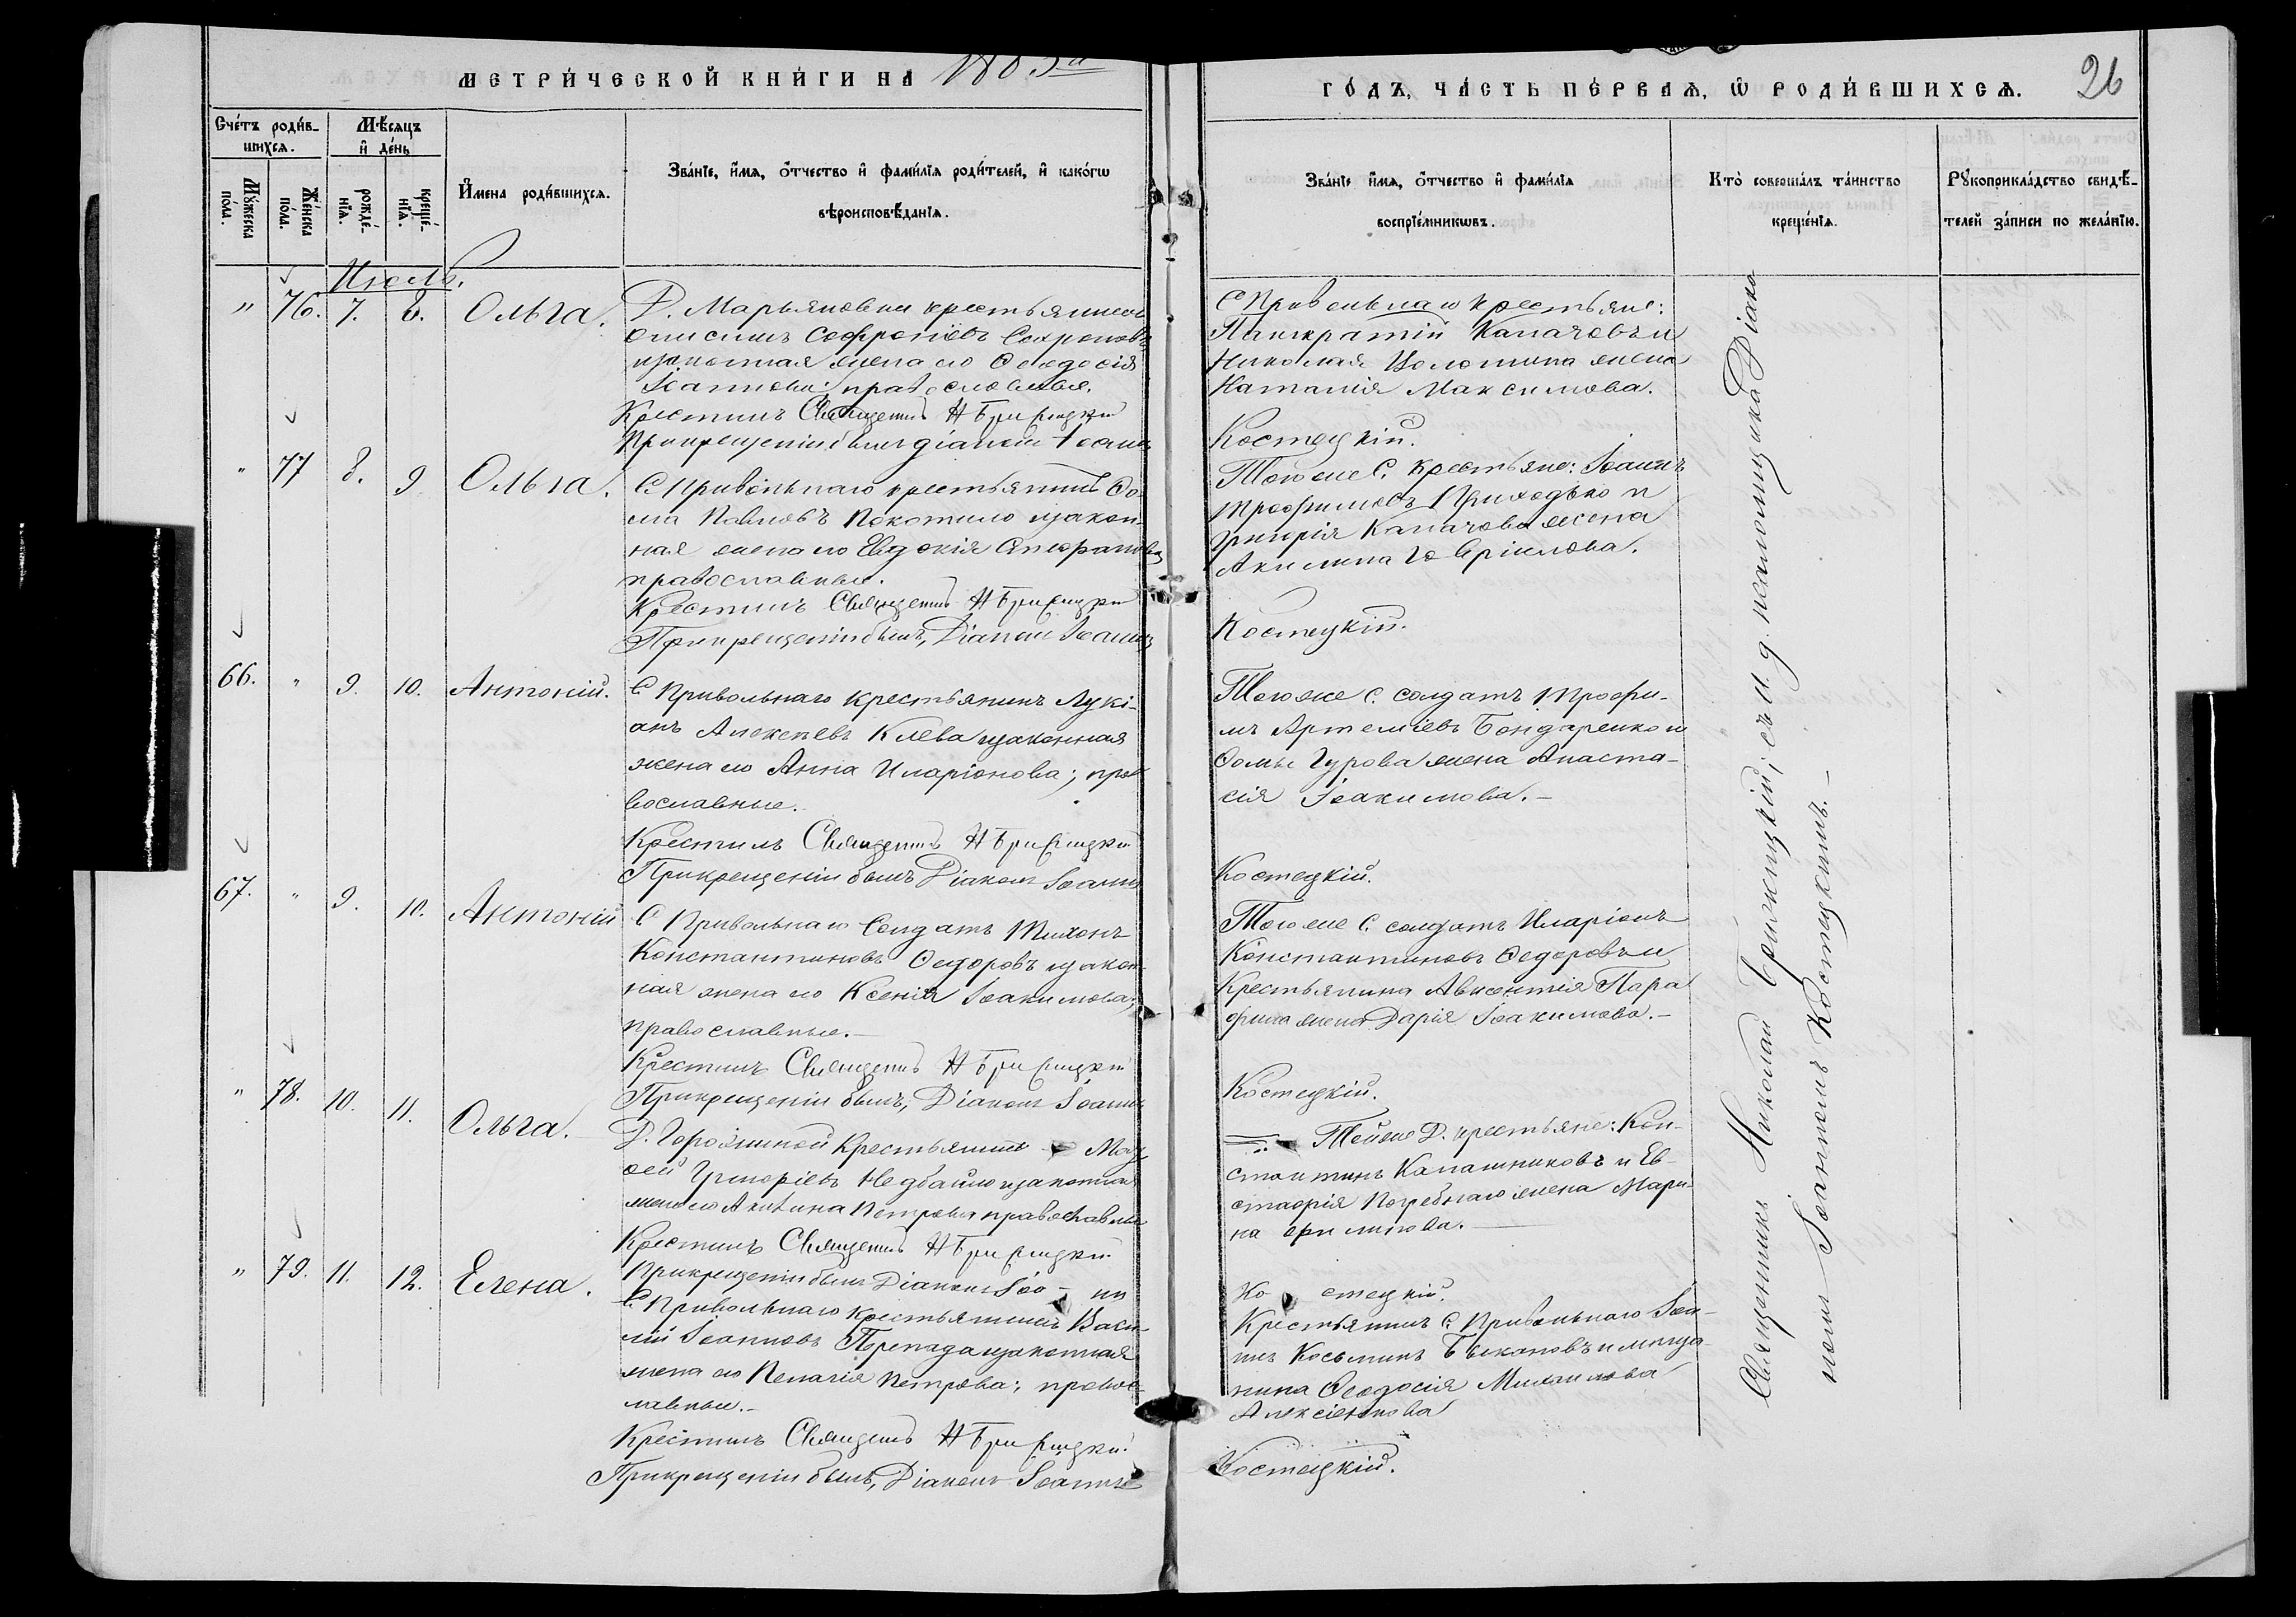 МЕТРИ́ЧЕСКОЙ КНИ́ГИ НА
ГО́ДЪ, ЧА́СТЬ ПЕ́РВАѦ, Ѡ РОДИ́ВШИХСѦ.
26
Сче́тъ роди́в-
шихсѧ.
Мѣ́сѧцъ
и҆ де́нь
Мꙋ́жеска
по́ла.
Же́нска
по́ла.
рожде́-
нїѧ.
креще́-
нїѧ.
И҆мена роди́вшихсѧ.
Зва́нїе, и҆́мѧ, ѻ҆́тчество и҆ фами́лїѧ роди́телей, и҆ како́гѡ
вѣроисповѣ́данїѧ.
Зва́нїе и҆́мѧ, ѻ҆́тчество и҆ фами́лїѧ
воспрїе́мникѡвъ.
Кто̀ соверша́лъ та́инство
креще́нїѧ.
Рꙋкоприкла́дство свидѣ́-
телей за́писи по жела́нїю.
Июль.
" 76. 7. 8. Ольга.
Д. Марьяновки крестьянинъ
Онисимъ Софроніевъ
законная жена его Ѳеодосія
православные.
Крестилъ Священникъ Н
При крещеніи былъ діаконъ Іоаннъ
С Привольнаго крестьяне:
Панкратій Капачовъ и
Николая Золотина жена
Наталія Максимова.
Костецкій.
" 77 8. 9. Ольга.
С. Привольнаго крестьянинъ Ѳо-
ма Павловъ Покотило и закон-
ная жена его Евдокія
православные.
Крестилъ Священникъ Н
При крещеніи былъ, Діаконъ Іоаннъ
Тогоже С. крестьяне: Іоаннъ
Трофимовъ Приходько и
Григорія Капачова жена
Акилина Гавріилова.
Костецкій.
66. " 9. 10. Антоній.
С. Привольнаго крестьянинъ Лукі-
анъ Алексѣевъ Клева и законная
жена его Анна Иларіонова; пра-
вославные.
Крестилъ Священникъ Н
При крещеніи былъ Діаконъ Іоаннъ
Тогоже С. солдатъ Трофи-
мъ Артеміевъ Бондаренко и
Ѳомы Гурова жена Анаста-
сія Іоакимова.-
Костецкій.
67. " 9. 10. Антоній
С Привольнаго Солдатъ Тихонъ
Константиновъ Ѳедоровъ и закон-
ная жена его Ксенія Іоакимова;
православные.-
Крестилъ Священникъ Н
При крещеніи былъ, Діаконъ Іоаннъ
Тогоже С. солдатъ Иларіонъ
Константиновъ Ѳедоровъ и
Крестьянина Авксентія Пара
фила жена Дарія Іоакимова.-
Костецкій.
" 78. 10. 11. Ольга.
Крестьянинъ Мои-
сей Григоріевъ Недбайло и законная
жена его Акилина Петрова православные
Крестилъ Священникъ Н
При крещеніи былъ Діаконъ Іоа - нъ
Тойже Д. крестьяне: Кон-
стантинъ Калашниковъ и Ев-
стафія Погребнаго жена Мари-
на
Ко стецкій.
" 79. 11. 12. Елена.
С. Привольнаго крестьянинъ Васи-
лій Іоанновъ и законная
жена его Пелагія Петрова; правос-
лавные.-
Крестилъ Священникъ Н
При крещеніи былъ, Діаконъ Іоаннъ
Крестьянинъ С. Привольнаго Іоа-
ннъ Косьминъ Быкановъ и
Ѳеодосія Михаилова
Костецкій.
Священникъ Николай съ и. д. псаломщика Діако-
номъ Іоанномъ Костецкимъ.-